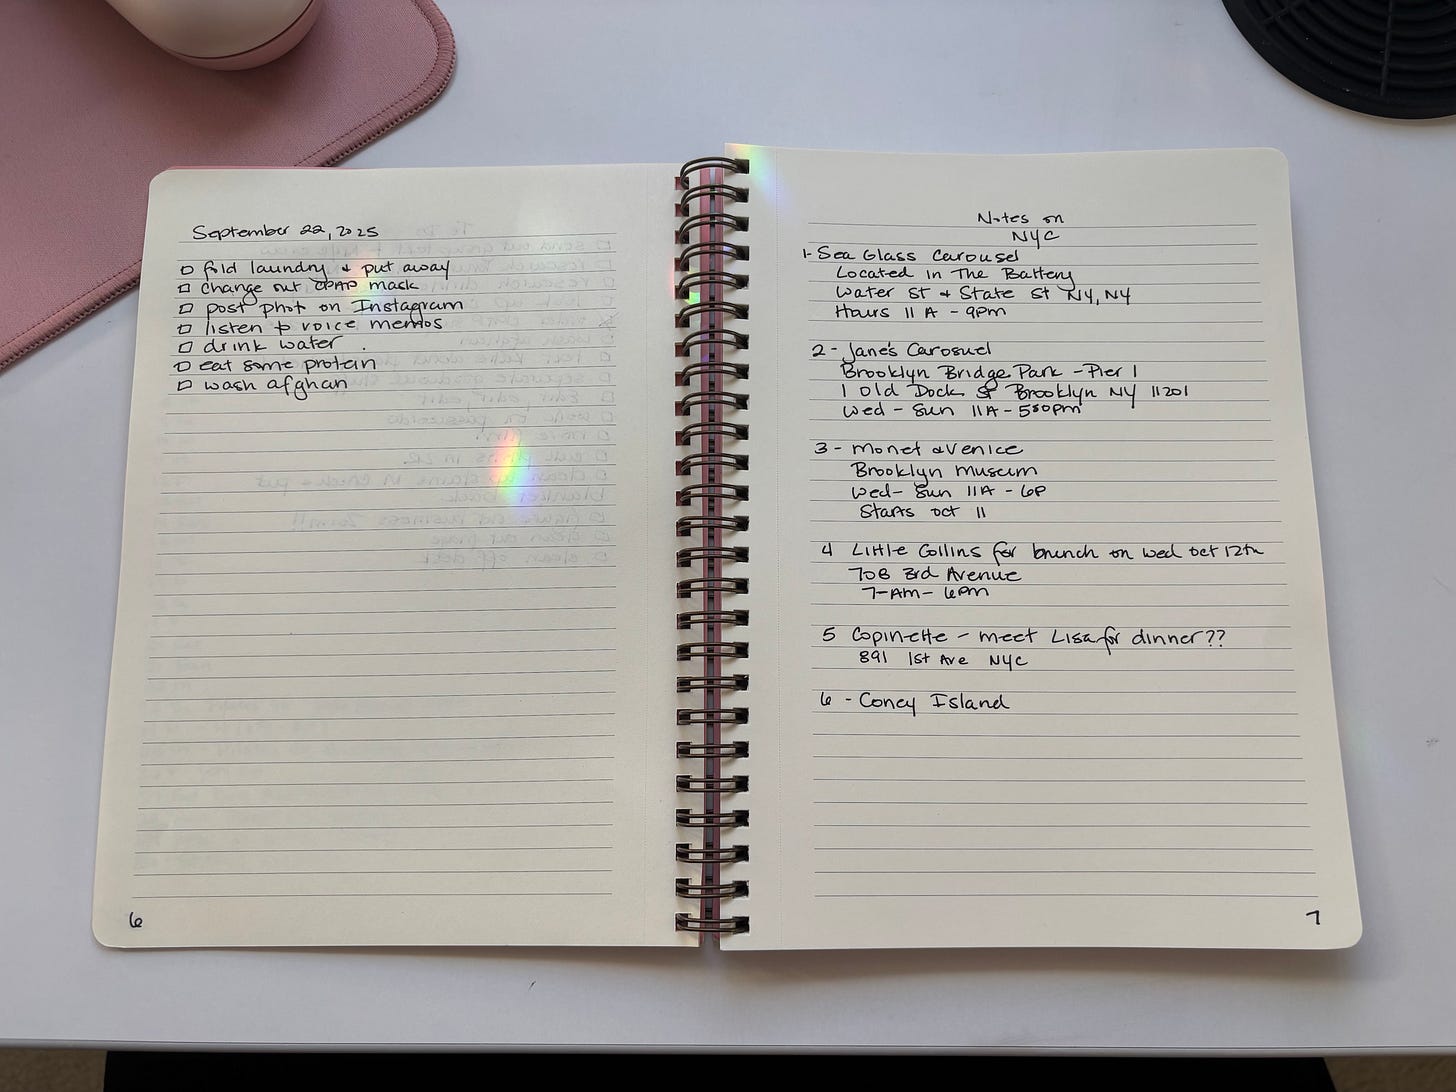 September 22, 2025
fold laundry & put away
change out CPAP mask
post phot on Instagram
listen to voice memos
drink water
eat some protein
wash afghan
6
Notes on
NYC
1- Sea Glass Carousel
Located in The Battery
Water St & State St NY, NY
Hours 11 A - 9pm
2 - Jane's Carosuel
Brooklyn Bridge Park - Pier 1
1 Old Dock St Brooklyn NY 11201
Wed - Sun 11A - 530pm
3 - Monet & Venice
Brooklyn Museum
Wed - Sun 11A - 6P
Starts Oct 11
4 Little Collins for brunch on Wed Oct 12th
708 3rd Avenue
7-AM - 6pm
5 Copinette - meet Lisa for dinner??
891 1st Ave NYC
6 - Coney Island
7